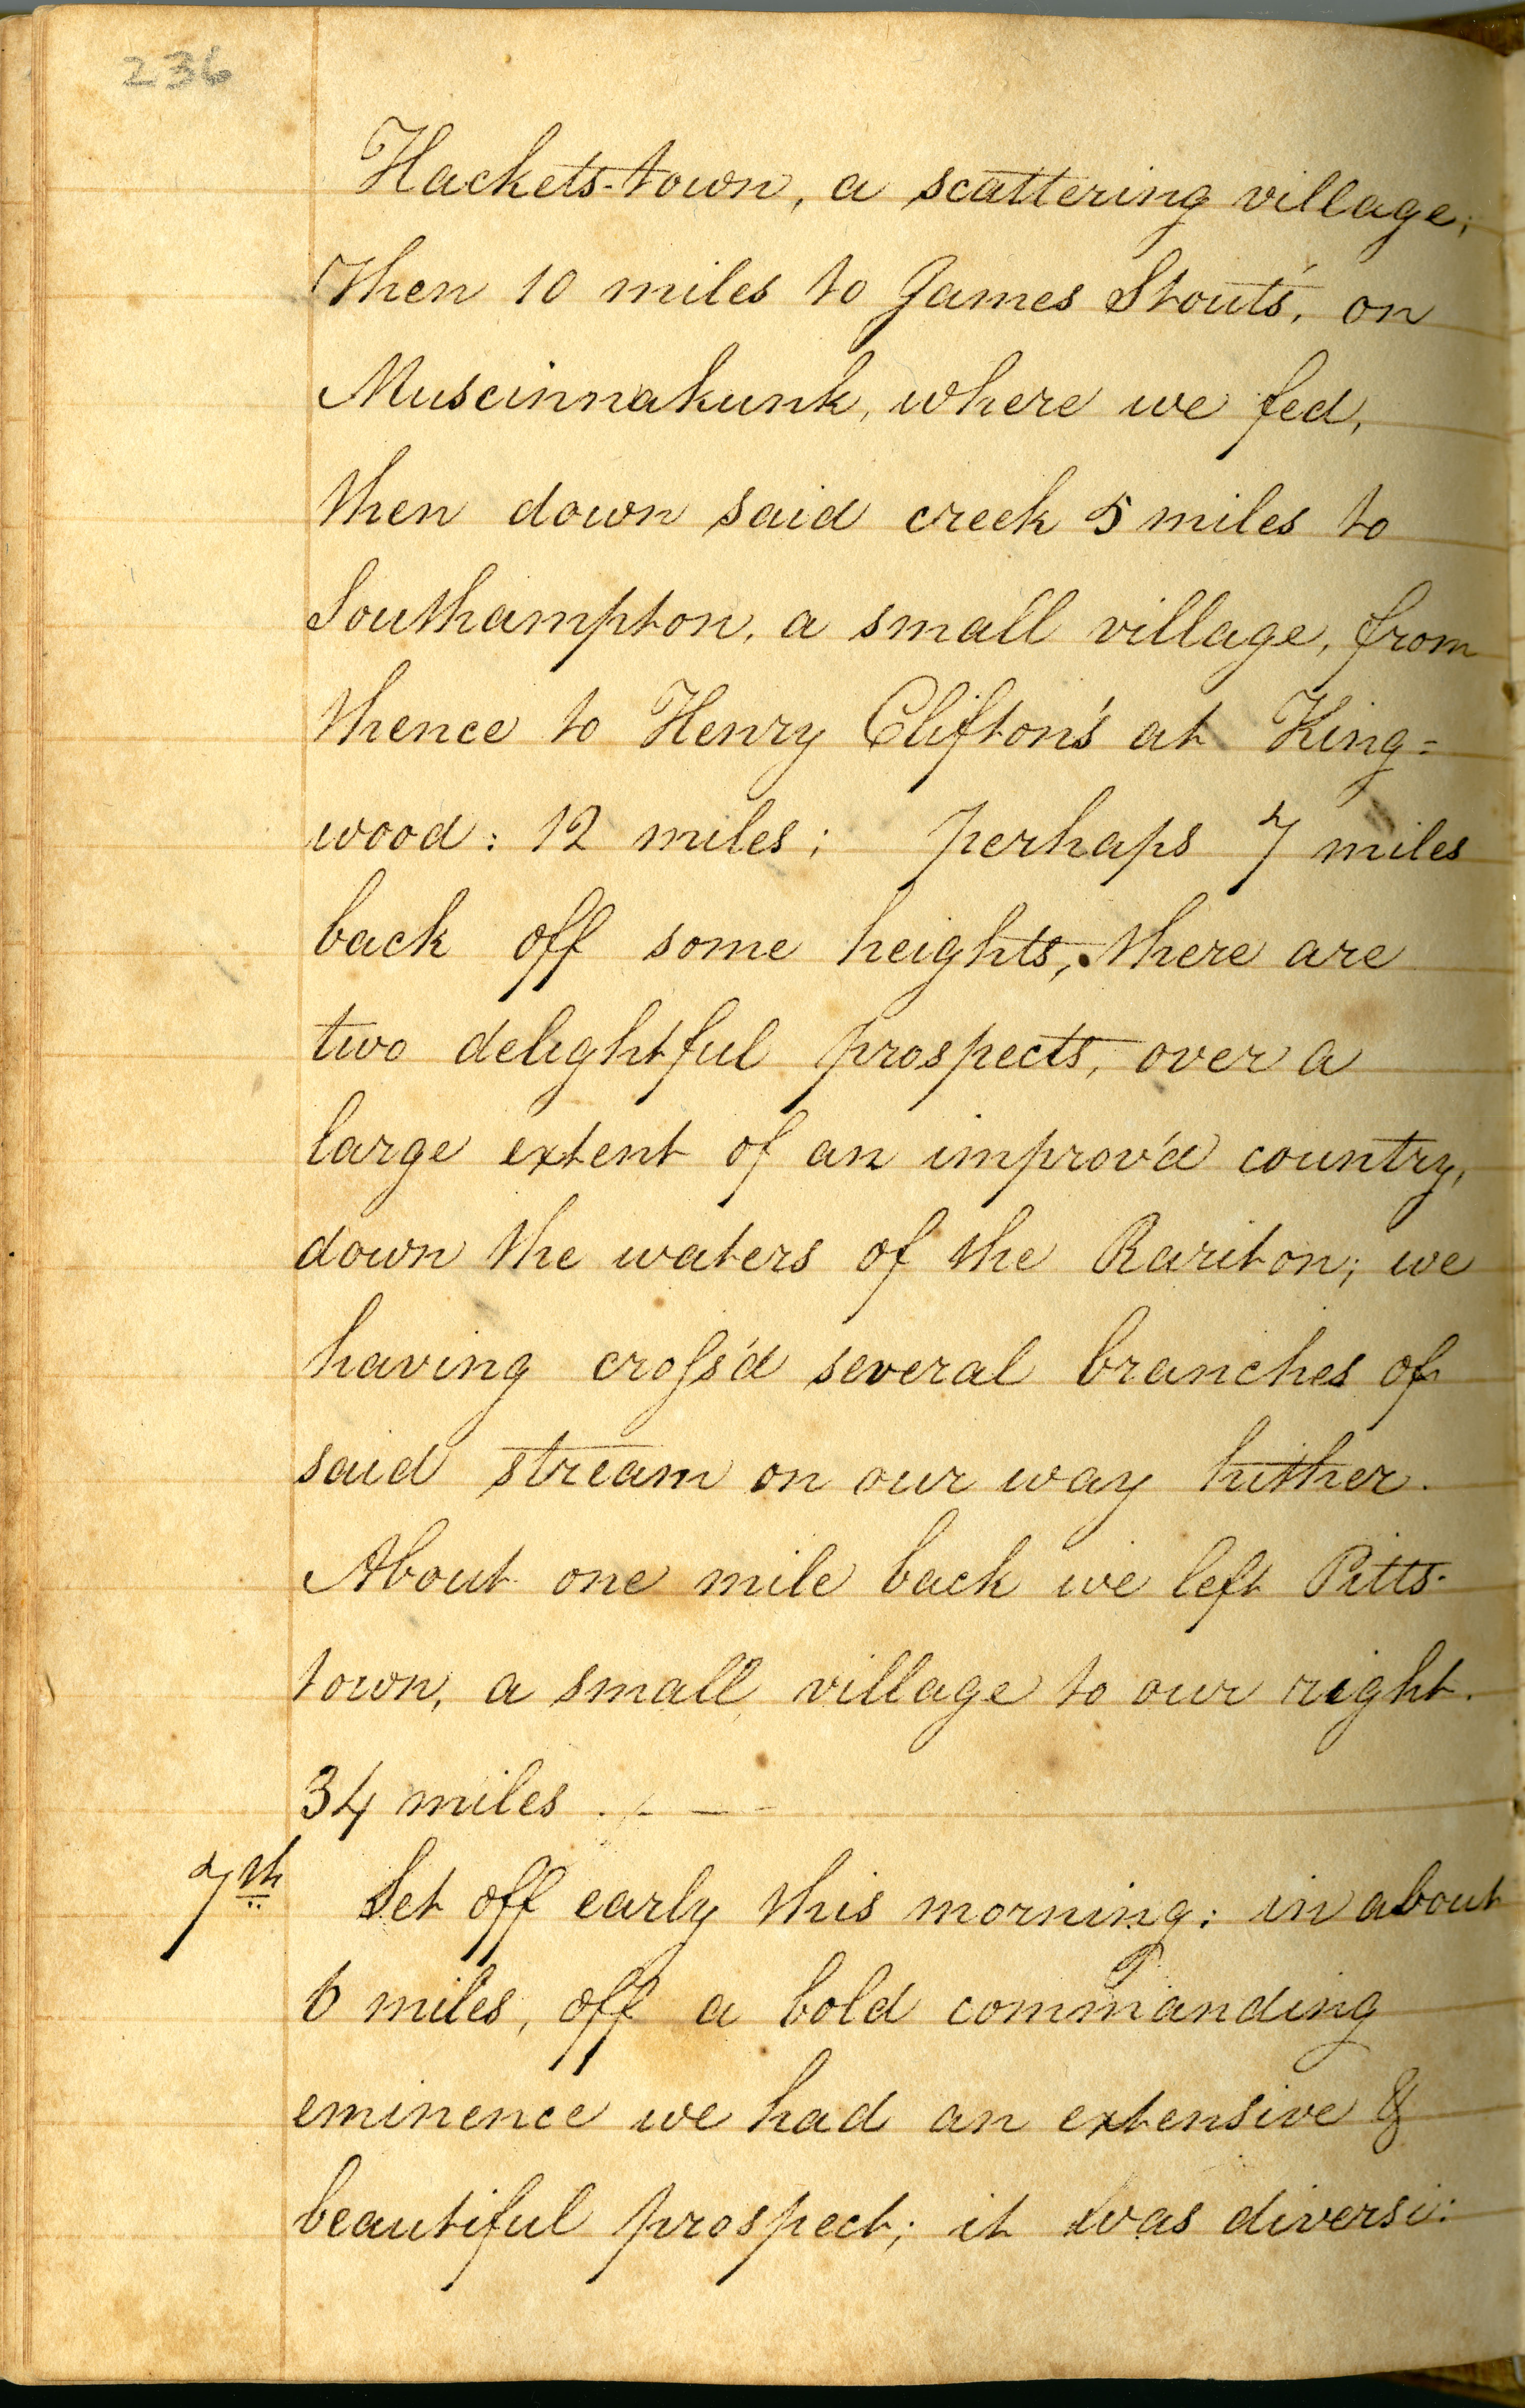 236
Hackets-town, a scattering village;
Then 10 miles to James Stout's, on
Muscinnakunk, where we fed,
then down said creek 5 miles to
Southampton, a small village, from
thence to Henry Clifton's at King=
wood: 12 miles; perhaps 7 miles
back off some heights, there are
two delightful prospects, over a
large extent of an improv'd country,
down the waters of the Rariton; we
having croſs'd several branches of
said stream on our way hither.
About one mile back we left Pitts-
town, a small village to our right.
34 miles . - —
7th Set off early this morning: in about
6 miles, off a bold commanding
eminence we had an extensive &
beautiful prospect; it was diversi: